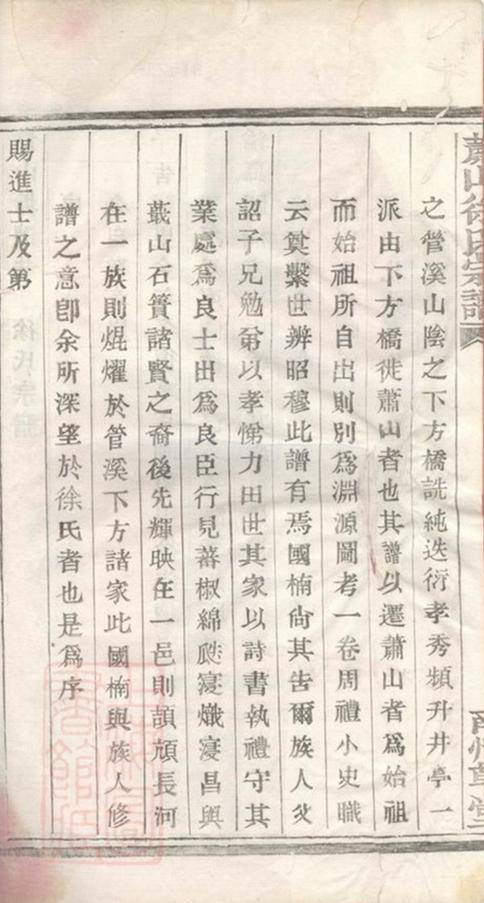 蕭山徐氏宗譜
之管溪山陰之下方橋詵純迭衍孝秀頻升井亭一
派由下方橋徙蕭山者也其譜以遷蕭山者為始祖
而始祖所自出則別為淵源圖考一卷周禮小史職
云奠繫世辨昭穆此譜有焉國楠尙其告爾族人父
詔子兄勉弟以孝悌力田世其家以詩書執禮守其
業處為良士出為良臣行見蕃椒綿瓞寖熾寖昌與
蕺山石簣諸賢之裔後先輝映在一邑則頡頏長河
在一族則焜燿於管溪下方諸家此國楠與族人修
譜之意卽余所深望於徐氏者也是為序
賜進士及第